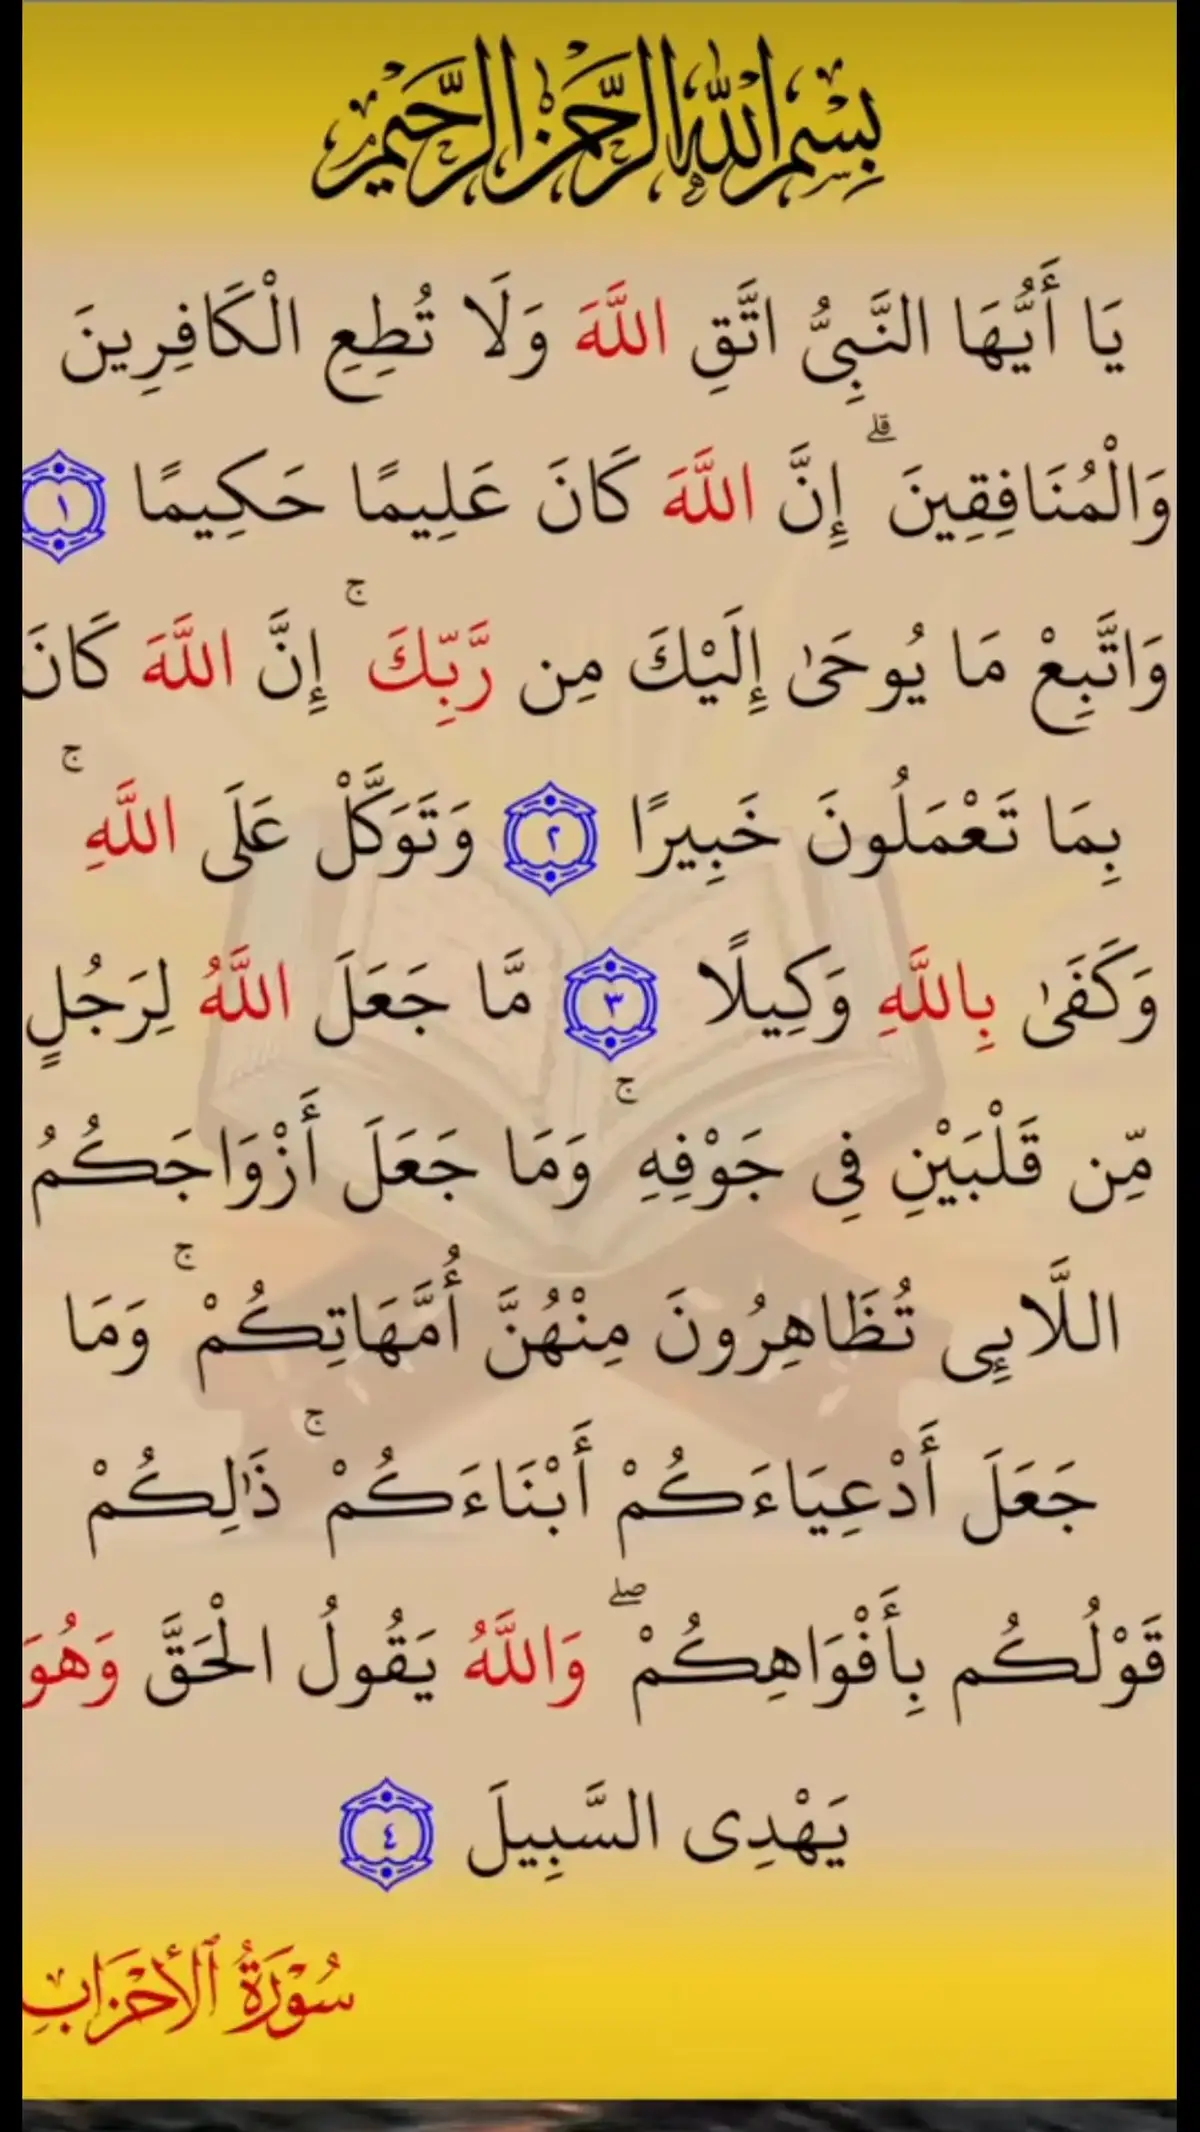 بِسْمِ اللَّهِ الرَّحْمَٰنِ الرَّحِيمِ
يَا أَيُّهَا النَّبِيُّ اتَّقِ اللَّهَ وَلَا تُطِعِ الْكَافِرِينَ
وَالْمُنَافِقِينَ ۗ إِنَّ اللَّهَ كَانَ عَلِيمًا حَكِيمًا ١
وَاتَّبِعْ مَا يُوحَىٰ إِلَيْكَ مِن رَّبِّكَ ۚ إِنَّ اللَّهَ كَانَ
بِمَا تَعْمَلُونَ خَبِيرًا ٢ وَتَوَكَّلْ عَلَى اللَّهِ ۚ
وَكَفَىٰ بِاللَّهِ وَكِيلًا ٣ مَّا جَعَلَ اللَّهُ لِرَجُلٍ
مِّن قَلْبَيْنِ فِي جَوْفِهِ ۚ وَمَا جَعَلَ أَزْوَاجَكُمُ
اللَّائِي تُظَاهِرُونَ مِنْهُنَّ أُمَّهَاتِكُمْ ۚ وَمَا
جَعَلَ أَدْعِيَاءَكُمْ أَبْنَاءَكُمْ ۚ ذَٰلِكُمْ
قَوْلُكُم بِأَفْوَاهِكُمْ ۖ وَاللَّهُ يَقُولُ الْحَقَّ وَهُوَ
يَهْدِي السَّبِيلَ ٤
سُورَةُ ٱلْأَحْزَابِ